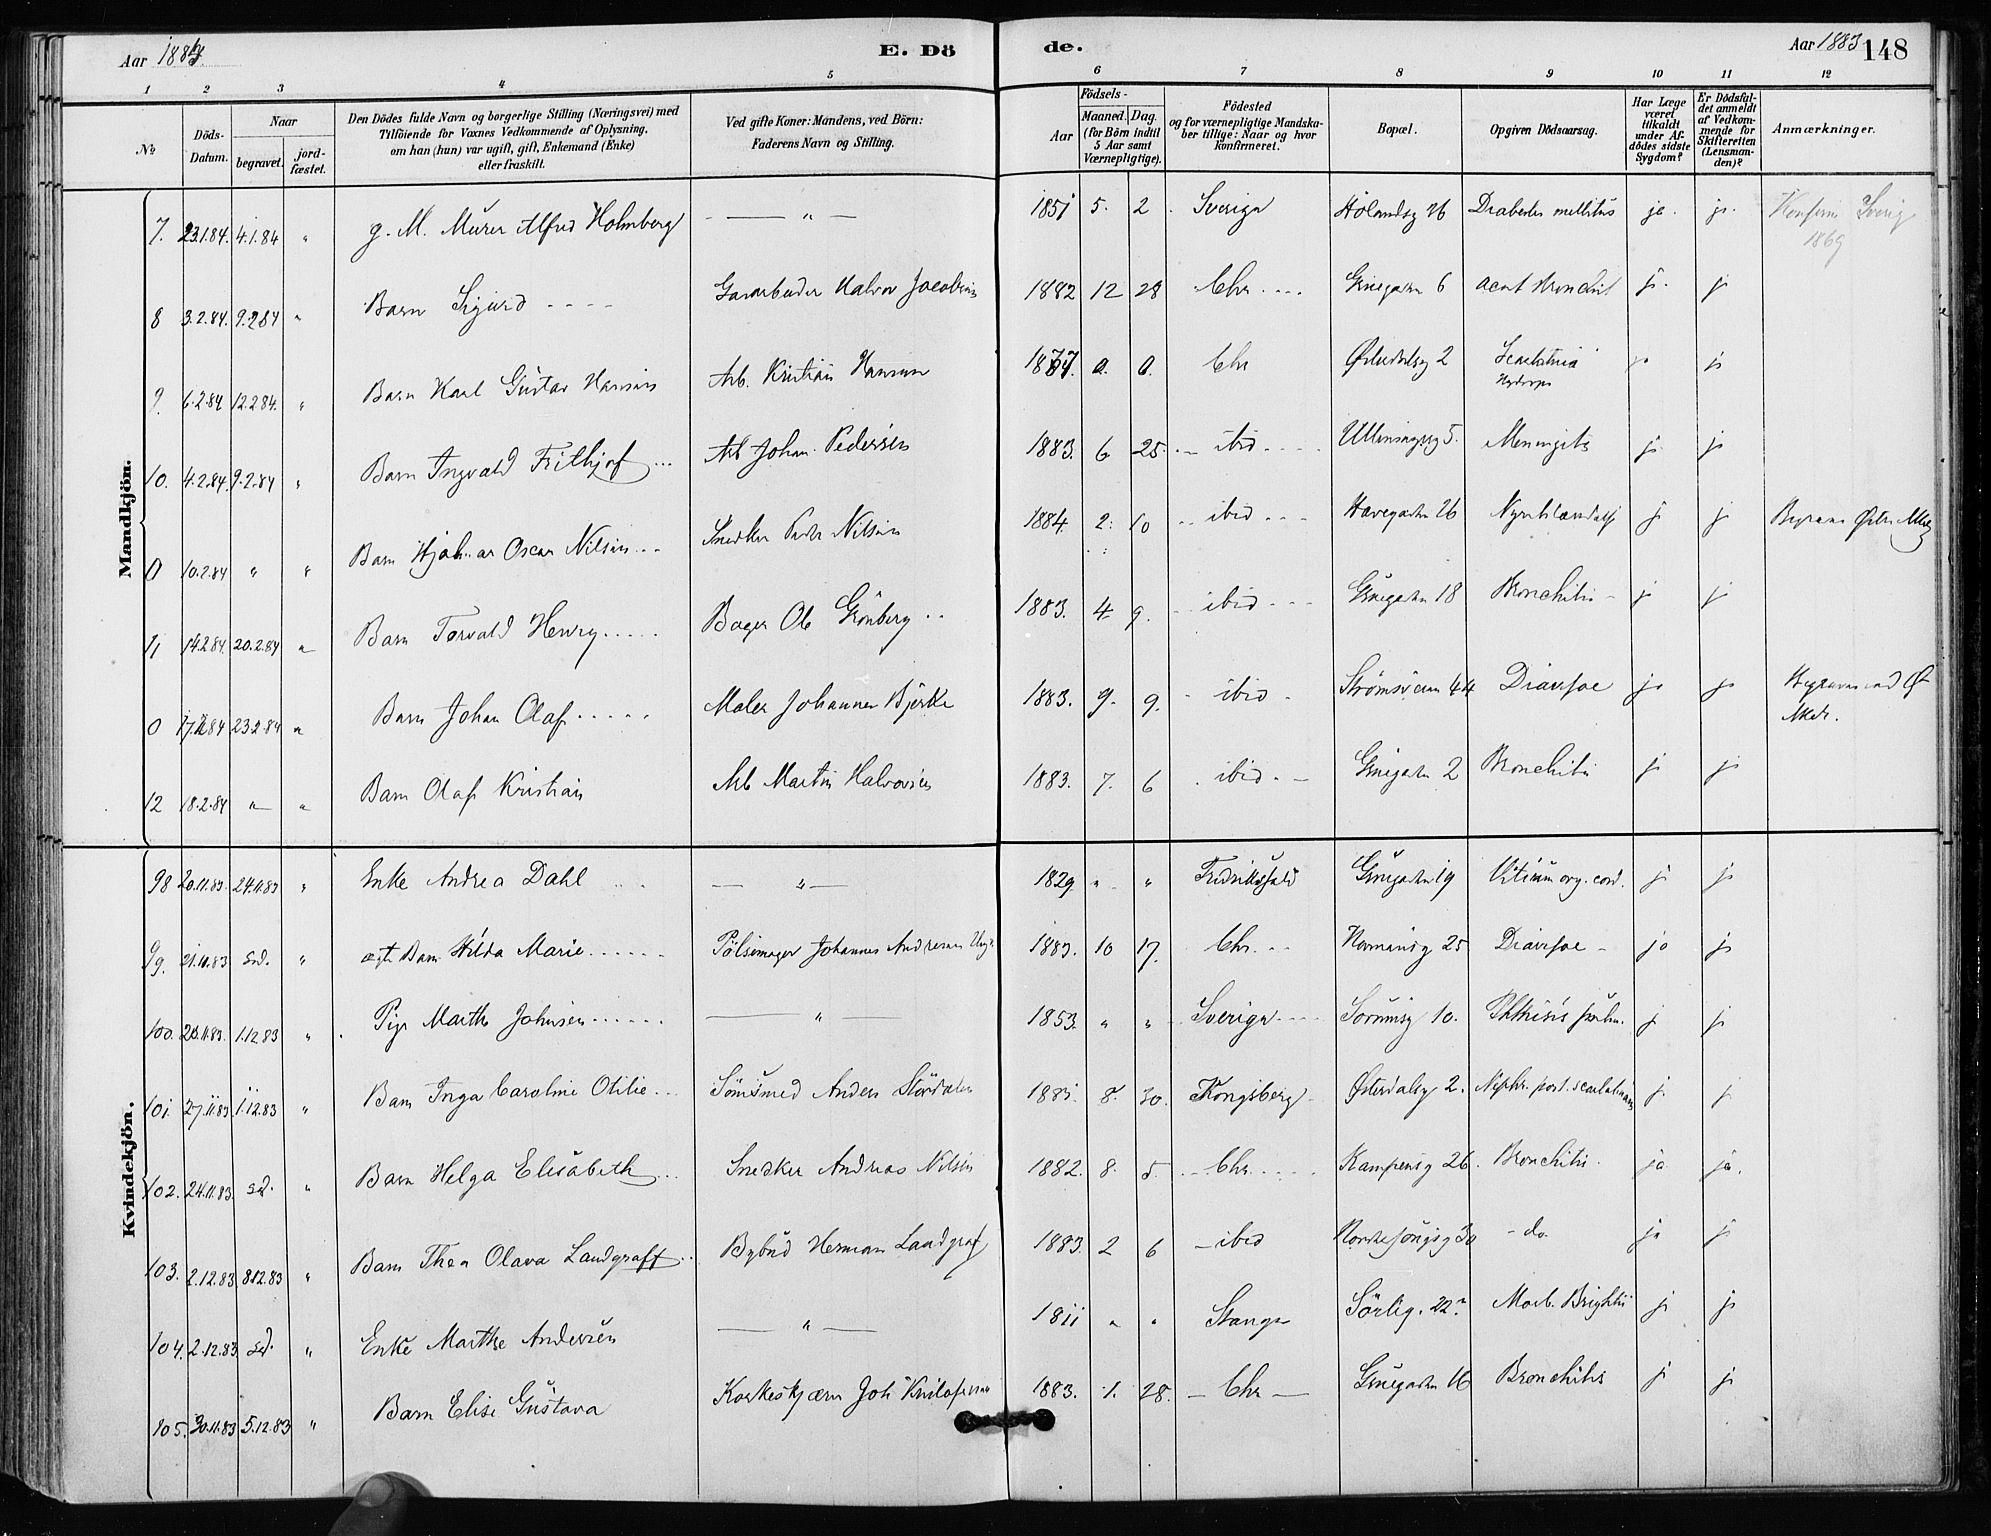 Aar 1884. E. Dö de. Aar 1883 148
1 2 3 4 5 6 7 8 9 10 11 12
No Döds-Datum. Naar begravet. jord-fæstet. Den Dödes fulde Navn og borgerlige Stilling (Næringsvei) med Tilföiende for Voxnes Vedkommende af Oplysning, om han (hun) var ugift, gift, Enkemand (Enke) eller fraskilt. Ved gifte Koner: Mandens, ved Börn: Faderens Navn og Stilling. Födsels- Aar Maaned. Dag. (for Börn indtil 5 Aar samt Værnepligtige). Födested og for værnepligtige Mandskaber tillige: Naar og hvor konfirmeret. Bopæl. Opgiven Dödsaarsag. Har Læge været tilkaldt under Afdödes sidste Sygdom? Er Dödsfaldet anmeldt af Vedkommende for Skifteretten (Lensmanden)? Anmærkninger.
Mandkjön.
7. 23.1.84. 4.1.84 " g. M. Murer Alfred Holmberg — " — 1851 5. 2. Sverige Hölandsg 26 Diabetes mellitus ja. ja. Konfirm Sverig 1869
8 3.2.84. 9.2 84 " Barn Sigurd Halvor Jacobsen 1882 12 28 Chr. Grüegaden 6 acut Bronchit j. j
9. 6.2.84 12.2 84. " Barn Karl Gustav Hansen Arb. Kristian Hansen 1877. 0. 0. Chr Østerdalsg 2 Scarlatina Hydrops ja ja
10. 4.2.84. 9.2.84 " Barn Ingvald Frithjof Arb Johan Pedersen 1883. 6 25. ibid Ullensagerg 5. Meningitis ja ja
0 10.2.84 " " Barn Hjalmar Oscar Nilsen Snedker Peder Nilsen 1884. 2. 10 ibid Havegaden 26 j j
11 14.2 84. 20.2.84 " Barn Torvald Henry Bager Ole Grönberg 1883. 4 9. ibid Grüegaden 18 Bronchitis j j
0 17.2.84 23.2.84 " Barn Johan Olaf Maler Johannes Bjerke 1883. 9. 9. ibid Strömsveien 44 Diarrhoe ja ja
12 18.2.84 " " Barn Olaf Kristian Arb Martin Halvorsen 1883. 7. 6 ibid. Grüegaden 2 Bronchitis j j
Kvindekjön.
98 20.11.83. 24.11.83 " Enke Andrea Dahl — " — 1829 " " Fredrikshald Grüegaden 19 Vitium org. cord. j j
99. 21.11.83 sd. " ægt. Barn Hilda Marie Pölsemager Johannes Andresen 1883. 10 17. Chr. Normansg 25 Diarrhoe ja ja
100. 20.11.83. 1.12 83 " Pige Marthe Johnsen — " — 1853. " " Sverige Sorumsg 10. Phthisis pulm. j j
101. 27.11 83 1.12.83 " Barn Inga Caroline Otilie Sömsmed Anders Stördalen 1881. 8. 30. Kongsberg Østerdalsg 2. Nephr. post. scarlatinam j j
102. 24.11.83. sd. " Barn Helga Elisabeth Snedker Andreas Nilsen 1882. 8. 5. Chr. Kampensg 26. Bronchitis. ja ja.
103. 2.12.83 8.12.83 " Barn Thea Olava Landgraff Bybud Herman Landgraf 1883. 2 6 ibid 30 do ja j
104. 2.12.83 sd. " Enke Marthe Andersen — " — 1811 " " Stange Sörlig. 22 Morb. Brightii j j
105. 30.11.83 5.12.83 " Barn Elise Gustava Korkeskjærer Joh Kristofersen 1883. 1. 28. Chr Grüegaden 16 Bronchitis j j